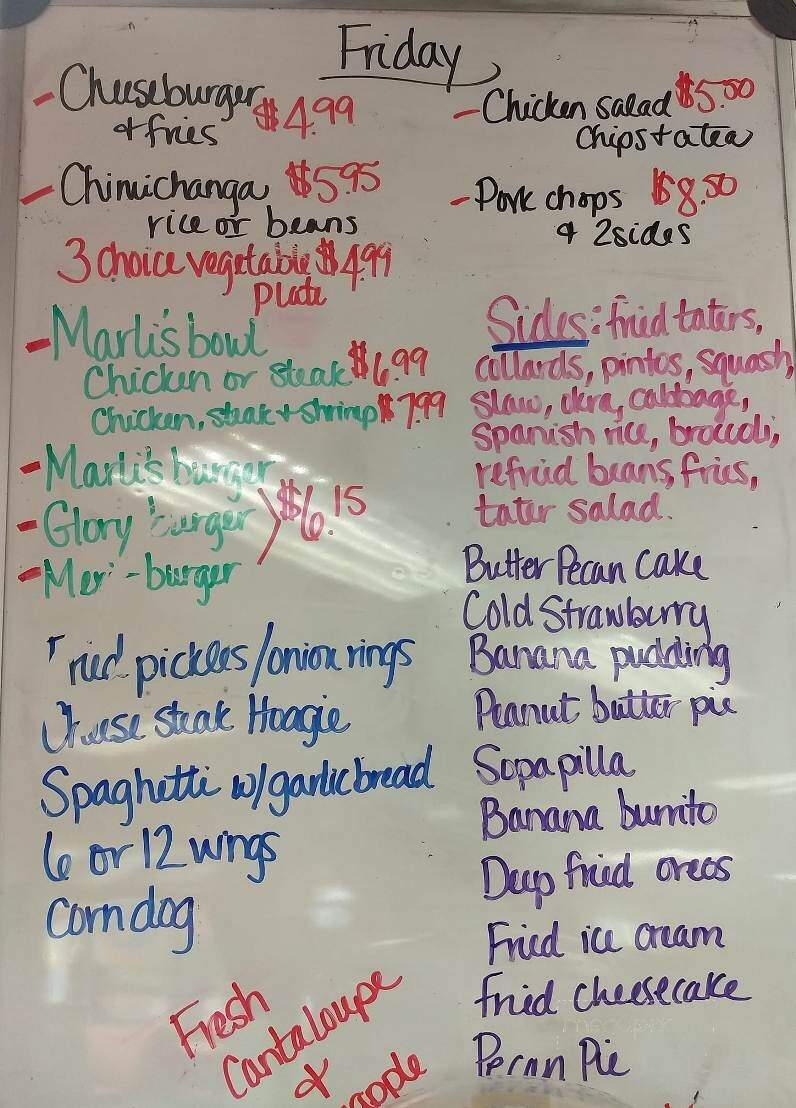 Friday
- Cheeseburger $4.99
& fries
- Chimichanga $5.95
rice or beans
3 choice vegetable $4.99
plate
- Marli's bowl
Chicken or steak $6.99
Chicken, steak + shrimp $7.99
- Marli's burger
- Glory burger $6.15
- Mexi-burger
Fried pickles/onion rings
Cheese steak Hoagie
Spaghetti w/garlic bread
6 or 12 wings
Corndog
Fresh
Cantaloupe
&
- Chicken salad $5.50
Chips + a tea
- Pork chops $8.50
& 2 sides
Sides: fried taters,
collards, pintos, squash,
slaw, okra, cabbage,
spanish rice, broccoli,
refried beans, fries,
tater salad.
Butter Pecan Cake
Cold Strawberry
Banana pudding
Peanut butter pie
Sopapilla
Banana burrito
Deep fried oreos
Fried ice cream
fried cheesecake
Pecan Pie